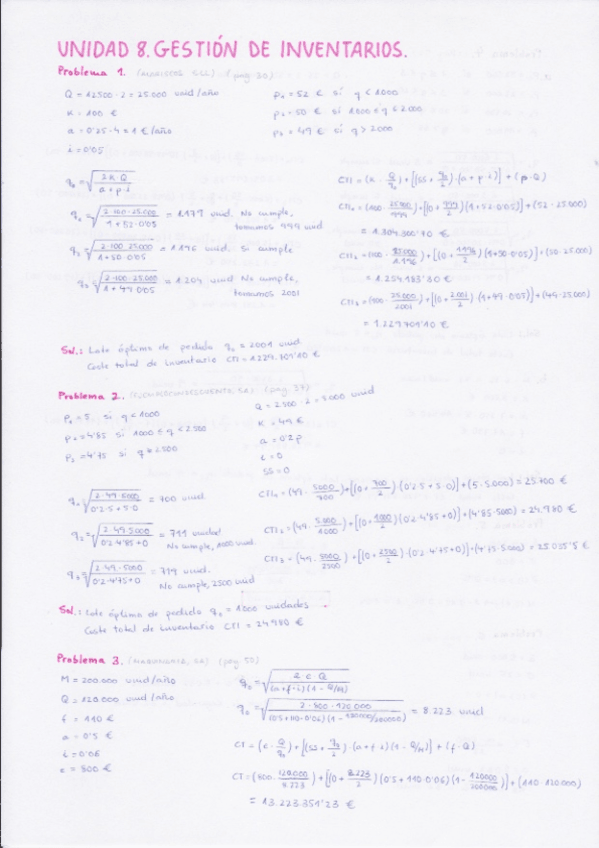 UNIDAD 8. GESTIÓN DE INVENTARIOS.
Problema 1. (pág. 30)
Q = 12500 · 2 = 25.000 unid/año
K = 100 €
a = 0'25 · 4 = 1 €/año
i = 0'05
p₁ = 52 € si q < 1000
p₂ = 50 € si 1000 ≤ q ≤ 2000
p₃ = 49 € si q > 2000
q₀ = √(2KQ / a+p·i)
q₁ = √(2·100·25.000 / 1+52·0'05) = 1.179 unid. No cumple,
tomamos 999 unid
q₂ = √(2·100·25.000 / 1+50·0'05) = 1.196 unid. Si cumple
q₃ = √(2·100·25.000 / 1+49·0'05) = 1.204 unid No cumple,
tomamos 2001
CTI = (K · Q/q₀) + [(SS + q₀/2) · (a+p·i)] + (p·Q)
CTI₁ = (100 · 25.000/999) + [(0 + 999/2)(1+52·0'05)] + (52·25.000)
= 1.304.300'70 €
CTI₂ = (100 · 25.000/1.196) + [(0 + 1196/2)(1+50·0'05)] + (50·25.000)
= 1.254.183'30 €
CTI₃ = (100 · 25.000/2001) + [(0 + 2001/2)(1+49·0'05)] + (49·25.000)
= 1.229.701'10 €
Sol.: Lote óptimo de pedido q₀ = 2001 unid
Coste total de inventario CTI = 1229.701'10 €
Problema 2. (pág. 37)
p₁ = 5, si q < 1000
p₂ = 4'85 si 1000 ≤ q < 2500
p₃ = 4'75 si q ≥ 2500
Q = 2500 · 2 = 5000 unid
K = 49 €
a = 0'2p
i = 0
SS = 0
q₁ = √(2·49·5000 / 0'2·5+5·0) = 700 unid.
q₂ = √(2·49·5000 / 0'2·4'85+0) = 711 unidad
No cumple, 1000 unid
q₃ = √(2·49·5000 / 0'2·4'75+0) = 719 unid.
No cumple, 2500 unid
CTI₁ = (49 · 5000/700) + [(0 + 700/2) · (0'2·5+5·0)] + (5·5.000) = 25.700 €
CTI₂ = (49 · 5.000/1000) + [(0 + 1000/2) (0'2·4'85+0)] + (4'85·5000) = 24.980 €
CTI₃ = (49 · 5000/2500) + [(0 + 2500/2) · (0'2·4'75+0)] + (4'75·5000) = 25.035'5 €
Sol.: Lote óptimo de pedido q₀ = 1000 unidades
Coste total de inventario CTI = 24980 €
Problema 3. (MAQUINARIA, SA) (pág 50)
M = 200.000 unid/año
Q = 120.000 unid/año
f = 110 €
a = 0'5
i = 0'06
c = 800 €
q₀ = √(2·c·Q / (a+f·i)(1-Q/M))
q₀ = √(2·800·120.000 / (0'5+110·0'06)(1-120000/200000)) = 8.223 unid
CT = (c · Q/q₀) + [(SS + q₀/2) · (a+f·i)(1-Q/M)] + (f·Q)
CT = (800 · 120.000/8.223) + [(0 + 8.223/2)(0'5+110·0'06)(1-120000/200000)] + (110·120.000)
= 13.223.351'23 €